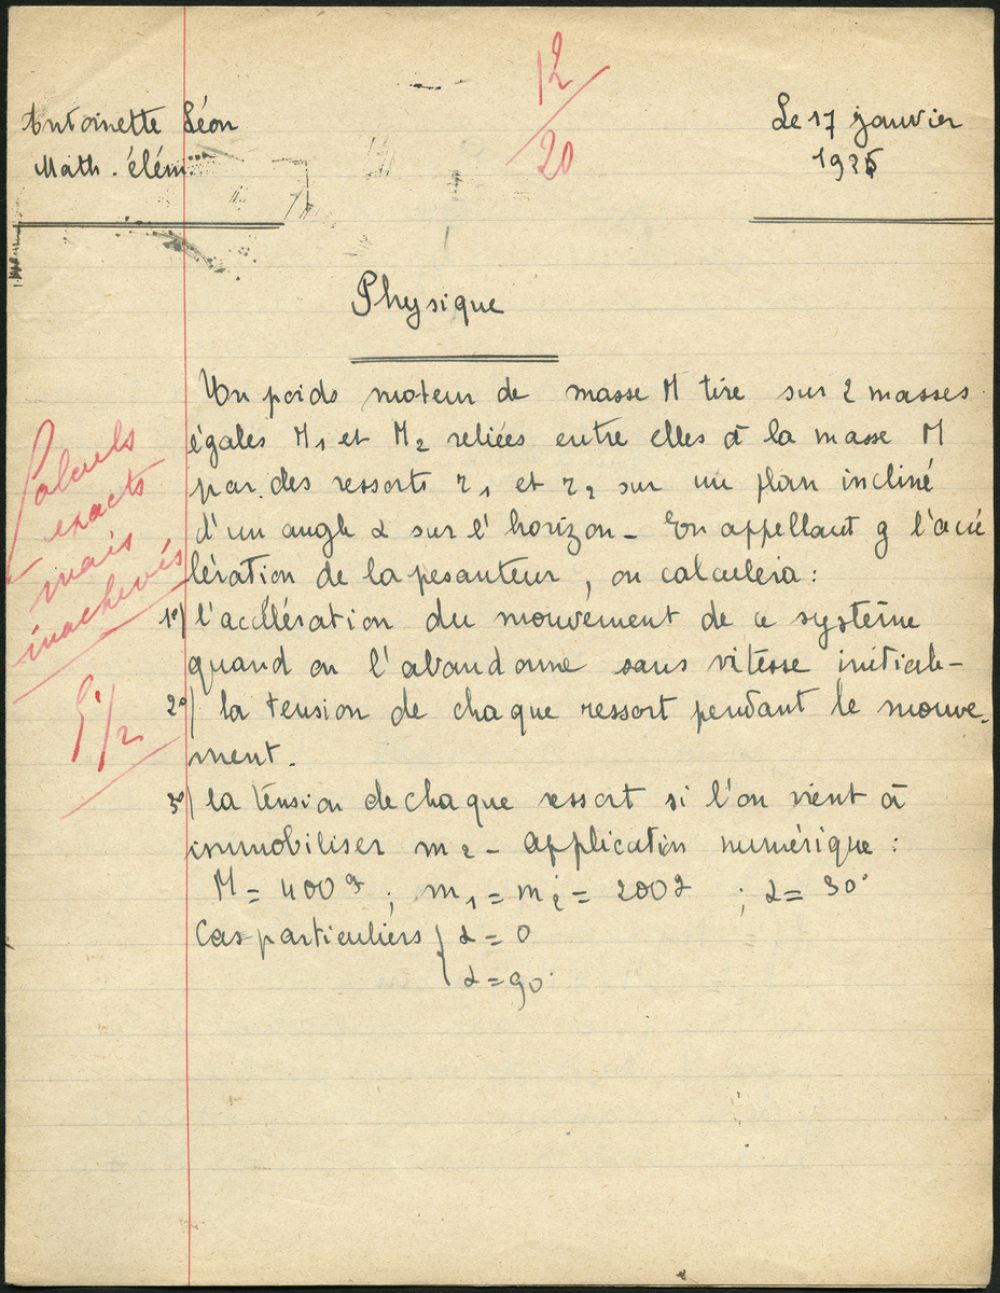 12
20
Antoinette Léon
Le 17 janvier
Math. élém.
1935
Physique
Un poids moteur de masse M tire sur 2 masses
égales M1 et M2 reliées entre elles à la masse M
par des ressorts r1 et r2 sur un plan incliné
d'un angle α sur l'horizon - En appellant g l'accé
lération de la pesanteur, on calculera :
1°) l'accélération du mouvement de ce système
quand on l'abandonne sans vitesse initiale -
2°) la tension de chaque ressort pendant le mouve-
ment.
3°) la tension de chaque ressort si l'on vient à
immobiliser m2 - Application numérique :
M = 400g ; m1 = m2 = 200g ; α = 30°
Cas particuliers { α = 0
α = 90°
Calculs
exacts
mais
inachevés